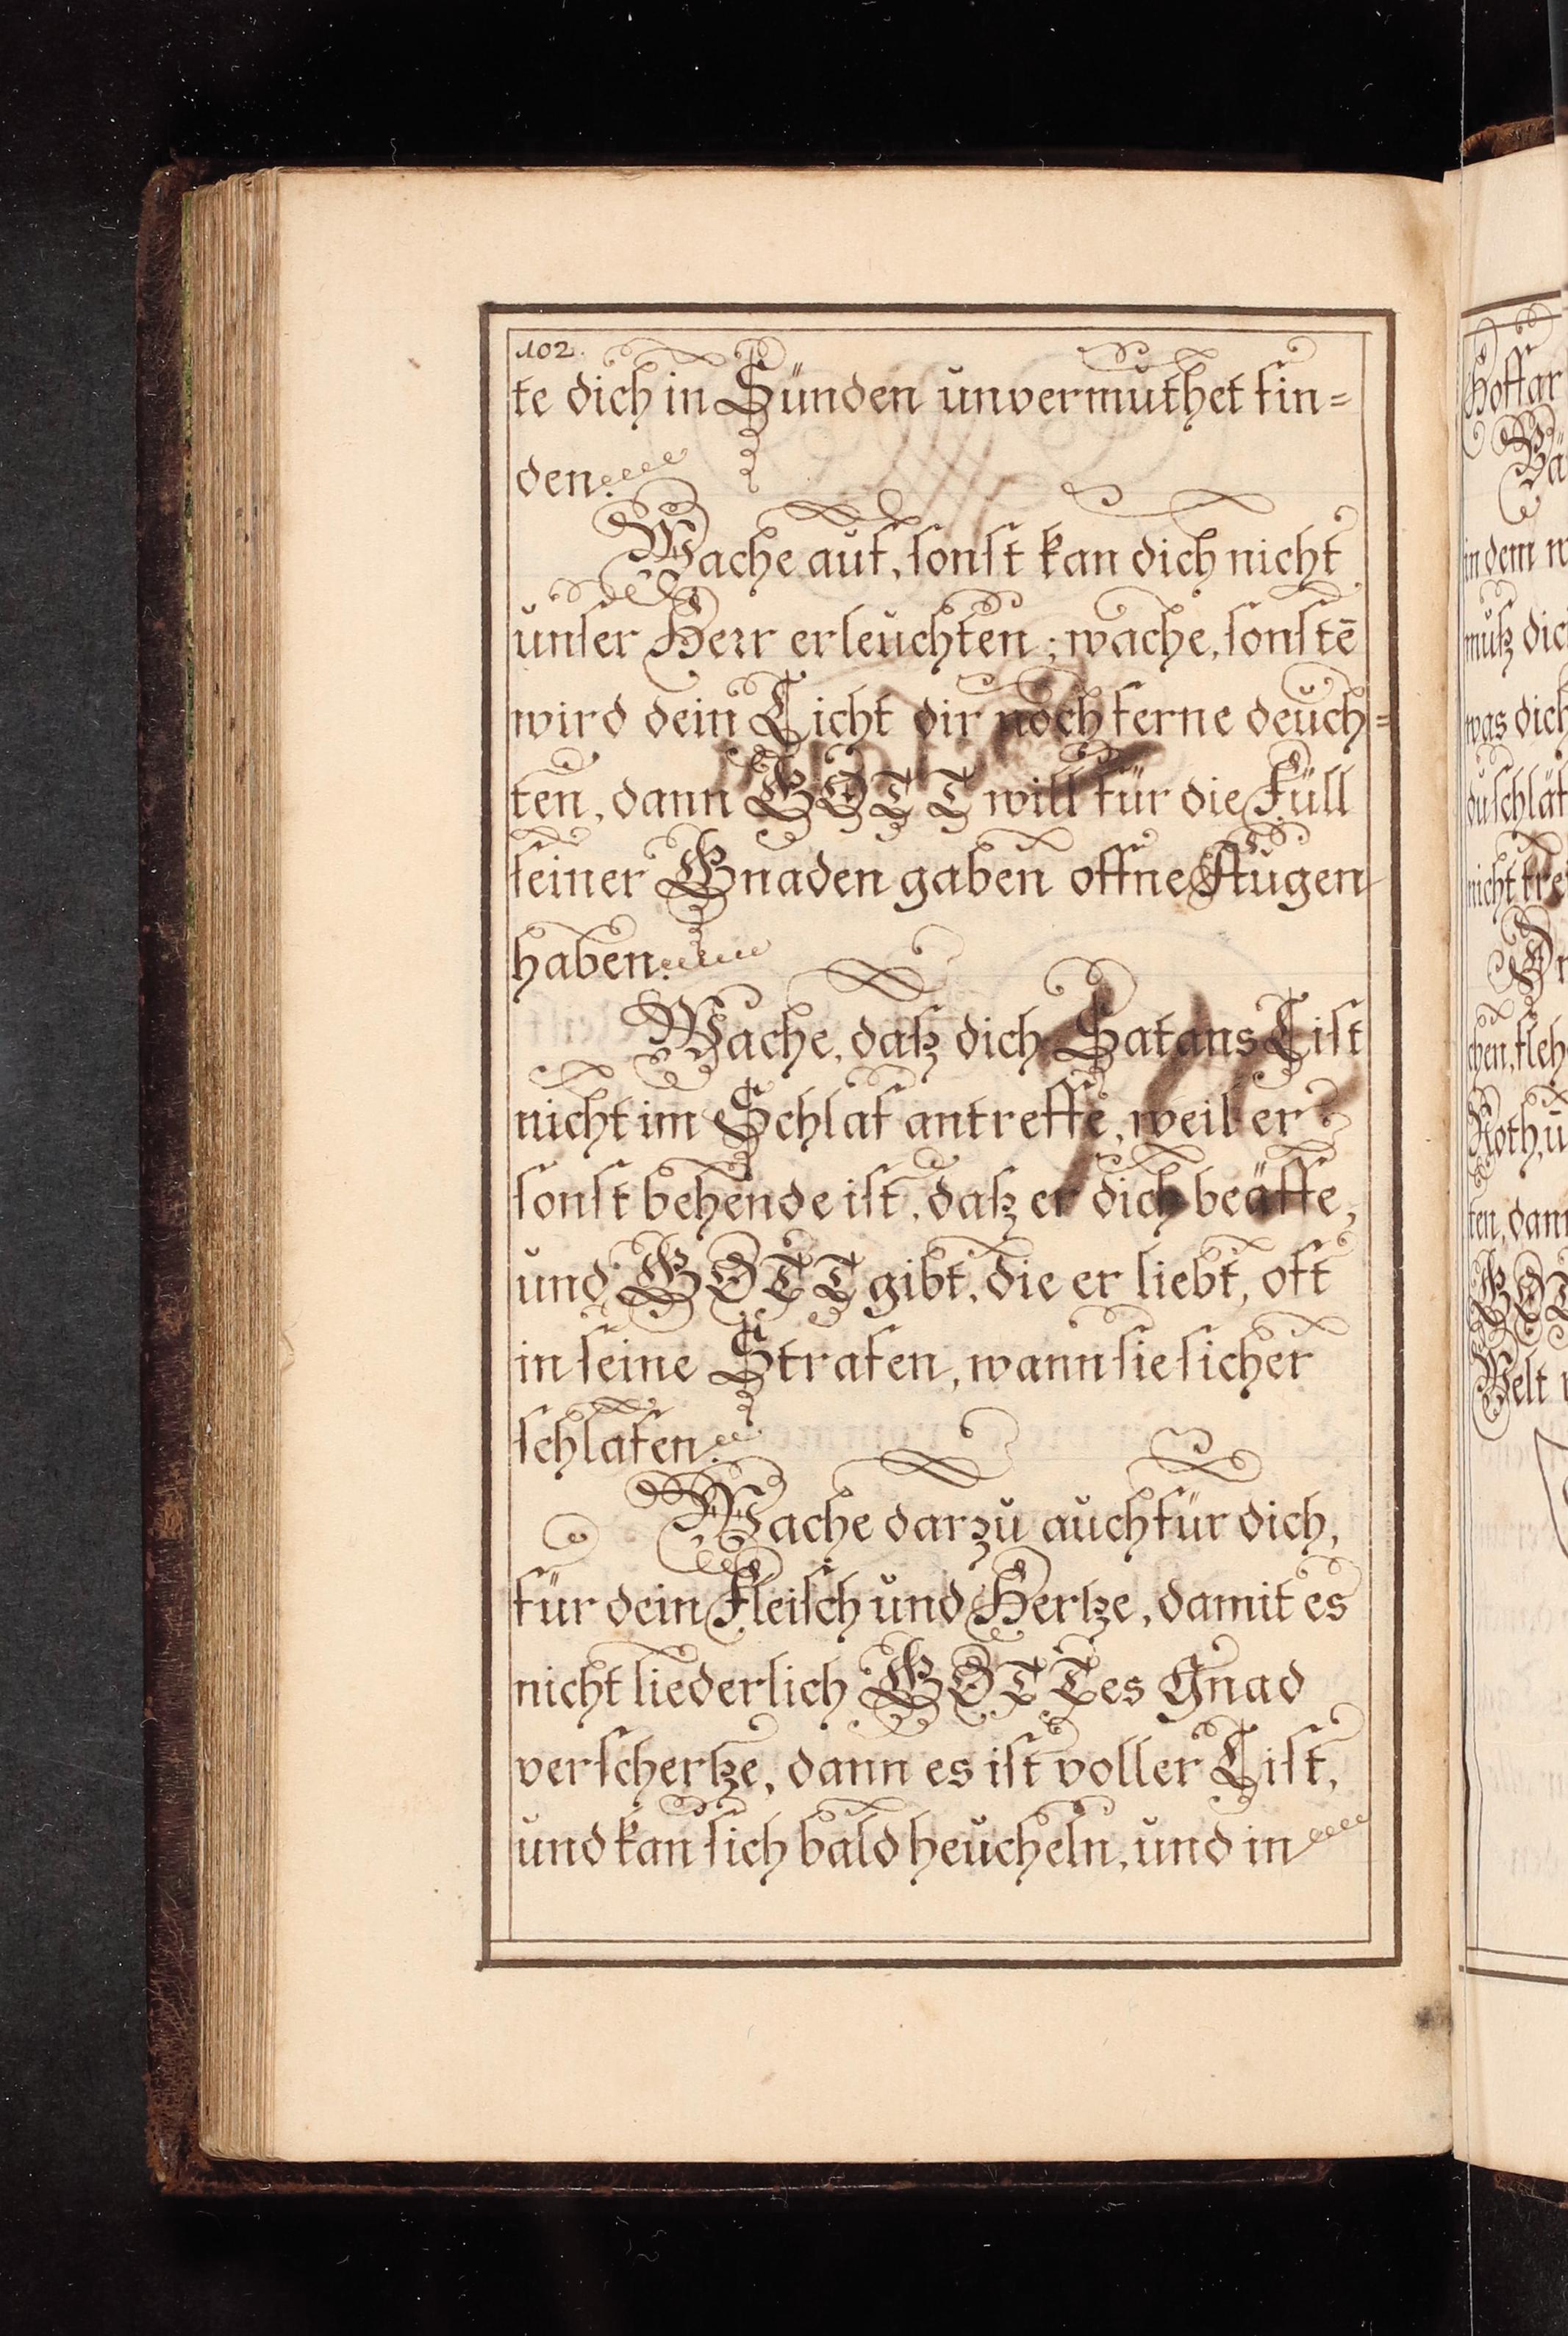 102.
te dich in Sünden unvermuthet fin=
den.
Wache auf, sonst kan dich nicht
unser Herr erleuchten; wache, sonstē
wird dein Licht dir noch ferne deuch=
ten, dann GOTT will für die Füll
seiner Gnaden gaben offne Augen
haben.
Wache, daß dich Satans List
nicht im Schlaf antreffe, weil er
sonst behende ist, daß er dich beäffe,
und GOTT gibt, die er liebt, oft
in seine Strafen, wann sie sicher
schlafen.
Wache darzu auch für dich,
für dein Fleisch und Hertze, damit es
nicht liederlich GOTTes Gnad
verschertze, dann es ist voller List,
und kan sich bald heucheln, und in
Hoffar
in dem
muß dic
was dich
du schläf
nicht
chen, fleh
Noth, ū
ten, dann
GOT
Welt